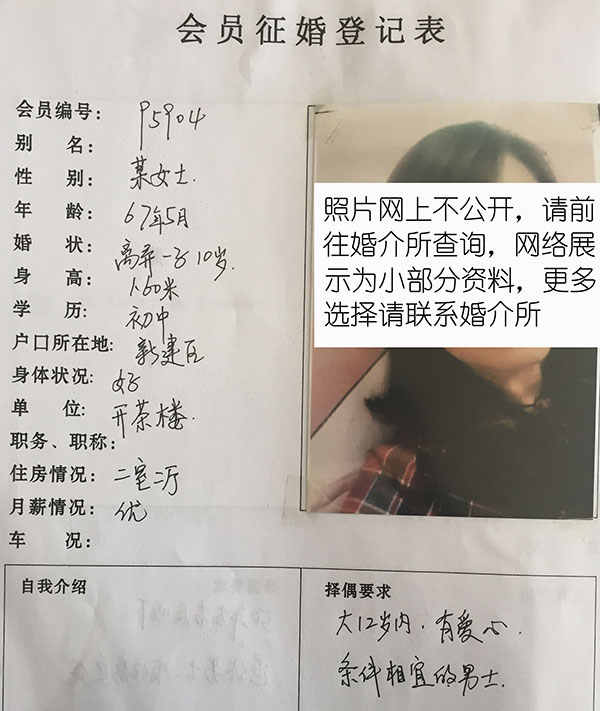 会员征婚登记表
会员编号: P5904
别 名:
性 别: 某女士.
年 龄: 67年5月
婚 状: 离异一子10岁.
身 高: 1.60米
学 历: 初中
户口所在地: 新建区
身体状况: 好
单 位: 开茶楼.
职务、职称:
住房情况: 二室二厅
月薪情况: 优
车 况:
照片网上不公开，请前
往婚介所查询，网络展
示为小部分资料，更多
选择请联系婚介所
自我介绍
择偶要求
大12岁内. 有爱心.
条件相宜的男士.